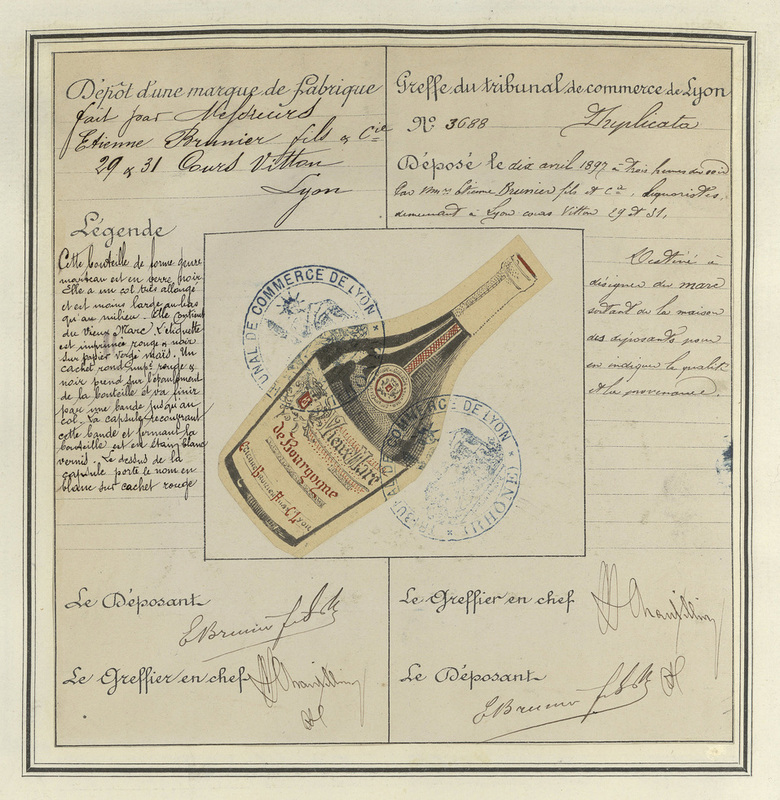 Dépôt d'une marque de fabrique
fait par Messieurs
Etienne Brunier fils & Cie
29 & 31 Cours Vitton
Lyon
Greffe du tribunal de commerce de Lyon
No 3688 Duplicata
Déposé le dix avril 1897 à trois heures du soir
Par MMrs Etienne Brunier fils et Cie, liquoristes,
demeurant à Lyon cours Vitton 29 et 31.
Légende
Cette bouteille de forme genre
marteau est en verre noir
Elle a un col très allongé
et est moins large au bas
qu'au milieu. Elle contient
du Vieux Marc. L'étiquette
est imprimée rouge & noir
sur papier vergé maïs. Un
cachet rond impé rouge &
noir prend sur l'épaulement
de la bouteille et va finir
par une bande jusqu'au
col. La capsule recouvrant
cette bande et fermant la
bouteille est en étain blanc
vernis. Le dessus de la
capsule porte le nom en
blanc sur cachet rouge
Destiné à
désigner du marc
sortant de la maison
des déposants pour
en indiquer la qualité
et la provenance.
TRIBUNAL DE COMMERCE DE LYON
Vieux Marc
de Bourgogne
Etienne Brunier Fils & Cie Lyon
COMMERCE DE LYON
Le Déposant
E Brunier fils & Cie
Le Greffier en chef
Le Greffier en chef
Le Déposant
E Brunier fils & Cie